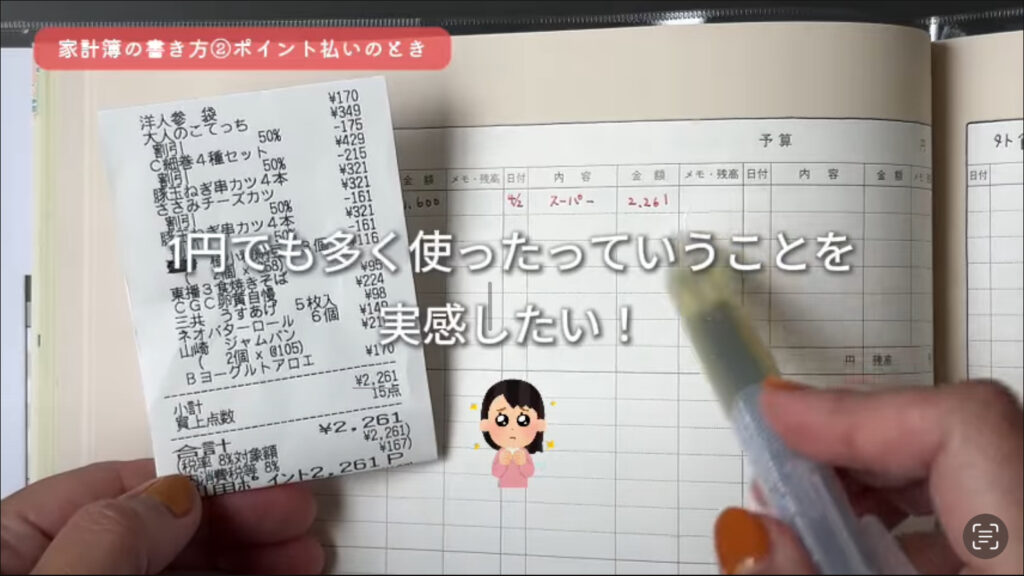 家計簿の書き方②ポイント払いのとき
洋人参 袋 ¥170
大人のこてっち ¥349
割引 50% -175
C細巻4種セット ¥429
割引 50% -215
豚玉ねぎ串カツ4本 ¥321
ささみチーズカツ ¥321
割引 50% -161
豚玉ねぎ串カツ4本 ¥321
50% -161
¥116
東播3食焼きそば ¥95
CGC卵黄自慢 ¥224
三共 うすあげ 5枚入 ¥98
ネオバターロール 6個
山崎 ジャムパン
( 2個 x @105)
Bヨーグルトアロエ ¥170
小計 ¥2,261
買上点数 15点
合計 ¥2,261
(税率 8%対象額 ¥2,261)
消費税等 8% ¥167)
2,261P
予算
円
金額 メモ・残高 日付 内容 金額 メモ・残高 日付 内容 金額
,600 4/2 スーパー 2,261
円 残高
日付
1円でも多く使ったっていうことを
実感したい！